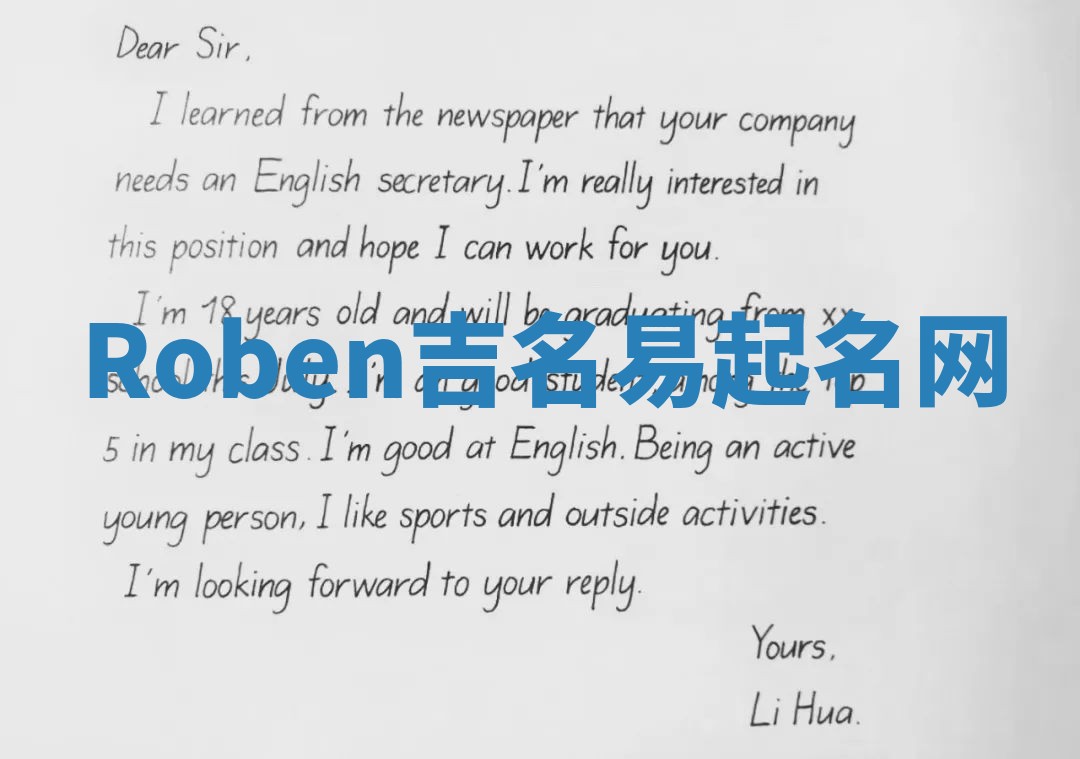 Dear Sir,
I learned from the newspaper that your company
needs an English secretary. I'm really interested in
this position and hope I can work for you.
I'm 18 years old and will be graduating from xx
Roben吉名易起名网
school this July. I'm a good student among the Top
5 in my class. I'm good at English. Being an active
young person, I like sports and outside activities.
I'm looking forward to your reply.
Yours,
Li Hua.